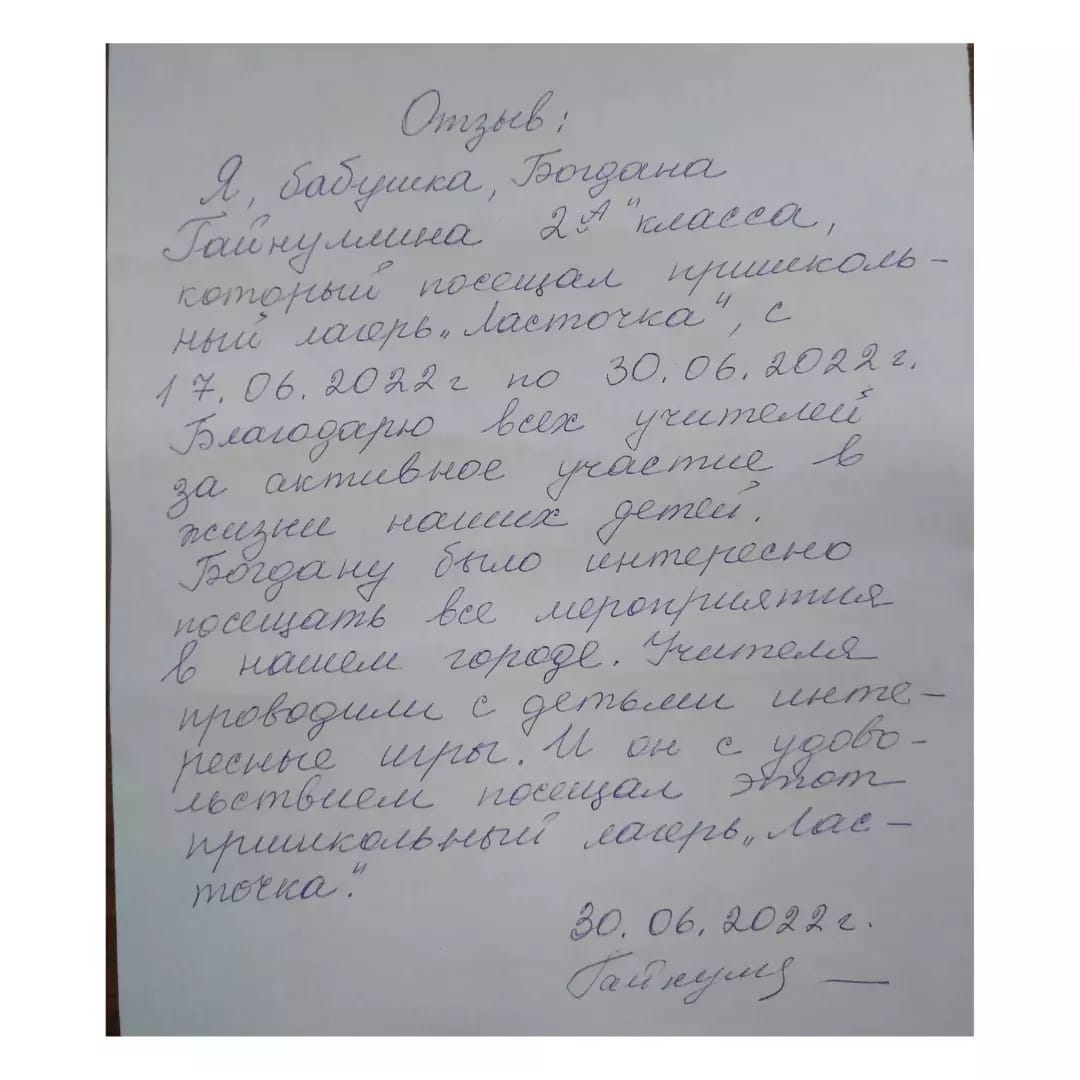 Отзыв:
Я, бабушка, Богдана
Гайнуллина 2„А" класса,
который посещал пришколь-
ный лагерь „Ласточка", с
17.06.2022г по 30.06.2022г.
Благодарю всех учителей
за активное участие в
жизни наших детей.
Богдану было интересно
посещать все мероприятия
в нашем городе. Учителя
проводили с детьми инте-
ресные игры. И он с удово-
льствием посещал этот
пришкольный лагерь „Лас-
точка".
30.06.2022г.